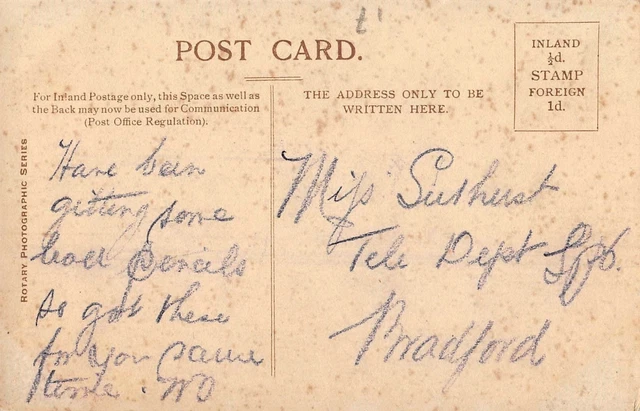 POST CARD.
INLAND
½d.
STAMP
FOREIGN
1d.
For Inland Postage only, this Space as well as
the Back may now be used for Communication
(Post Office Regulation).
THE ADDRESS ONLY TO BE
WRITTEN HERE.
ROTARY PHOTOGRAPHIC SERIES
Have been
getting some
lead Pencils
so got these
for you same
time. WD
Miss Suthurst
Tele Dept
Bradford